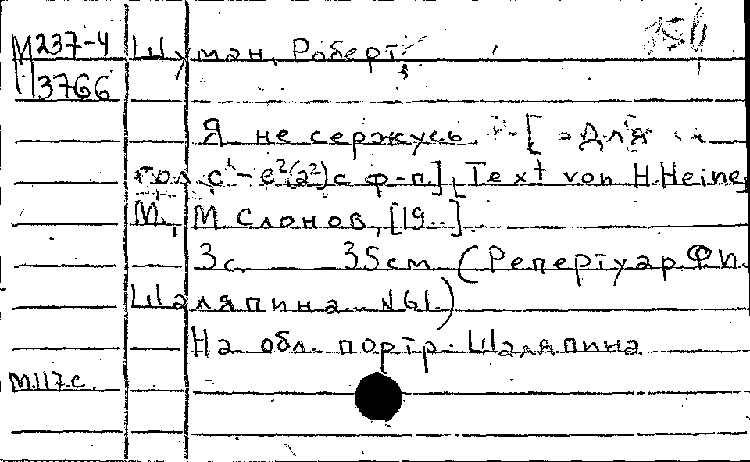 М237-4 Шуман, Роберт.
3766
Я не сержусь. - [Для
гол. c¹-e²(a²) с ф-п.], Text von H. Heine,
М., М. Слонов, [19..]
3с. 35см. (Репертуар Ф.И.
Шаляпина. №61.)
На обл. портр. Шаляпина
М117с.